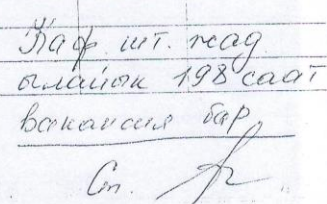 Каф. шт. жад
ылайык 198 саат
вакансия бар.
Ст.